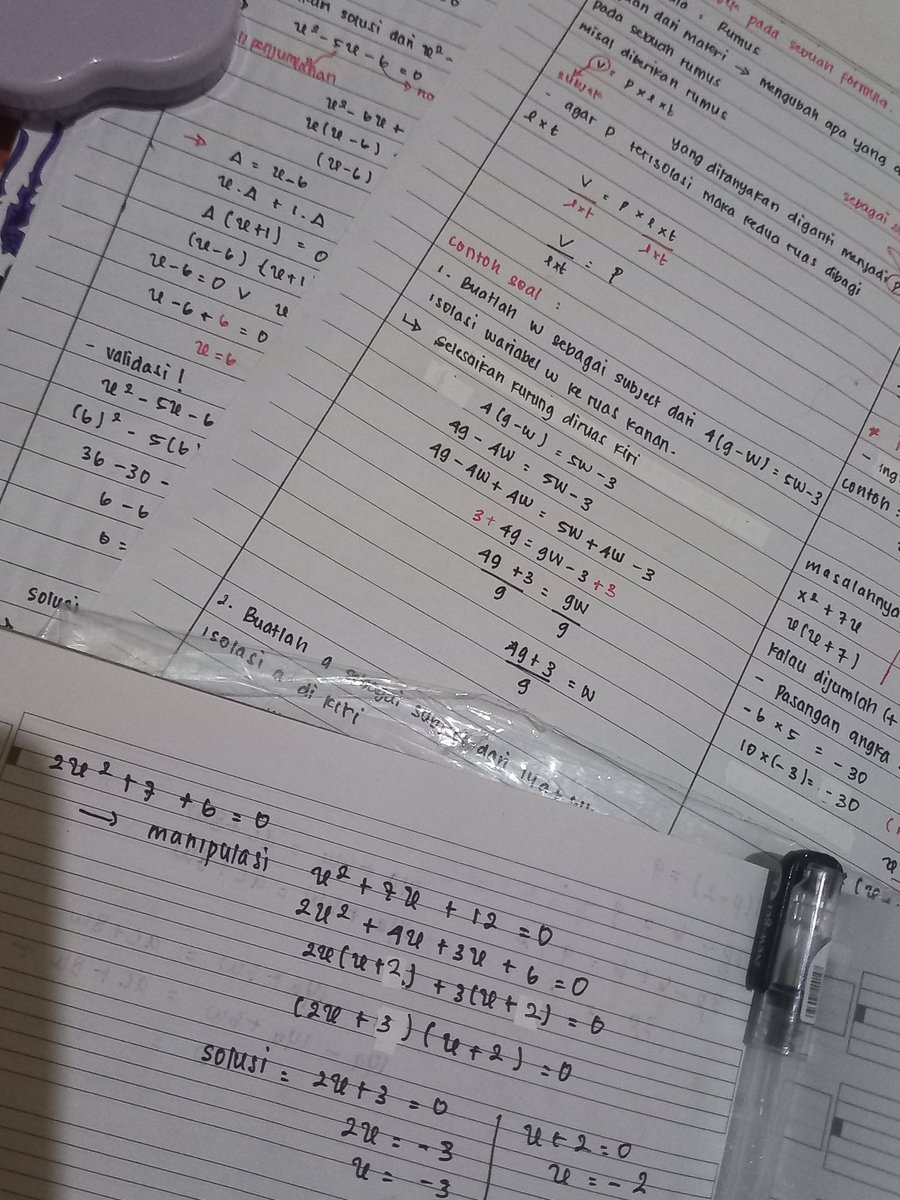 solusi dari x² -
x² - 5x - 6 = 0
penjumlahan
x² - 6x +
x(x - 6)
(x - 6)
→ A = x - 6
x . A + 1 . A
A(x+1) = 0
(x-6) (x+1
x - 6 = 0 V x
x - 6 + 6 = 0
x = 6
- validasi 1
x² - 5x - 6
(6)² - 5(6)
36 - 30 -
6 - 6
0 =
solusi
pada sebuah formula.
: Rumus
dari materi → mengubah apa yang
pada sebuah rumus
misal diberikan rumus
V = p x l x t
subjek
yang ditanyakan diganti menjadi p
- agar p terisolasi maka kedua ruas dibagi
l x t
sebagai
V / l x t = p x l x t / l x t
V / l x t = p
contoh soal :
1. Buatlah w sebagai subject dari 4(g-w) = 5w-3
isolasi variabel w ke ruas kanan.
↳ selesaikan kurung diruas kiri
4(g-w) = 5w-3
4g - 4w = 5w - 3
4g - 4w + 4w = 5w + 4w - 3
3 + 4g = 9w - 3 + 3
4g + 3 / 9 = 9w / 9
4g + 3 / 9 = w
2. Buatlah a sebagai subject dari
isolasi a di kiri
contoh =
masalahnya
x² + 7x
x(x + 7)
kalau dijumlah (+
- Pasangan angka
-6 x 5 = -30
10 x (-3) = -30
2x² + 7 + 6 = 0
→ manipulasi
x² + 7x + 12 = 0
2x² + 4x + 3x + 6 = 0
2x(x+2) + 3(x+2) = 0
(2x + 3) (x + 2) = 0
solusi = 2x + 3 = 0
2x = -3
x = -3
x + 2 = 0
x = -2